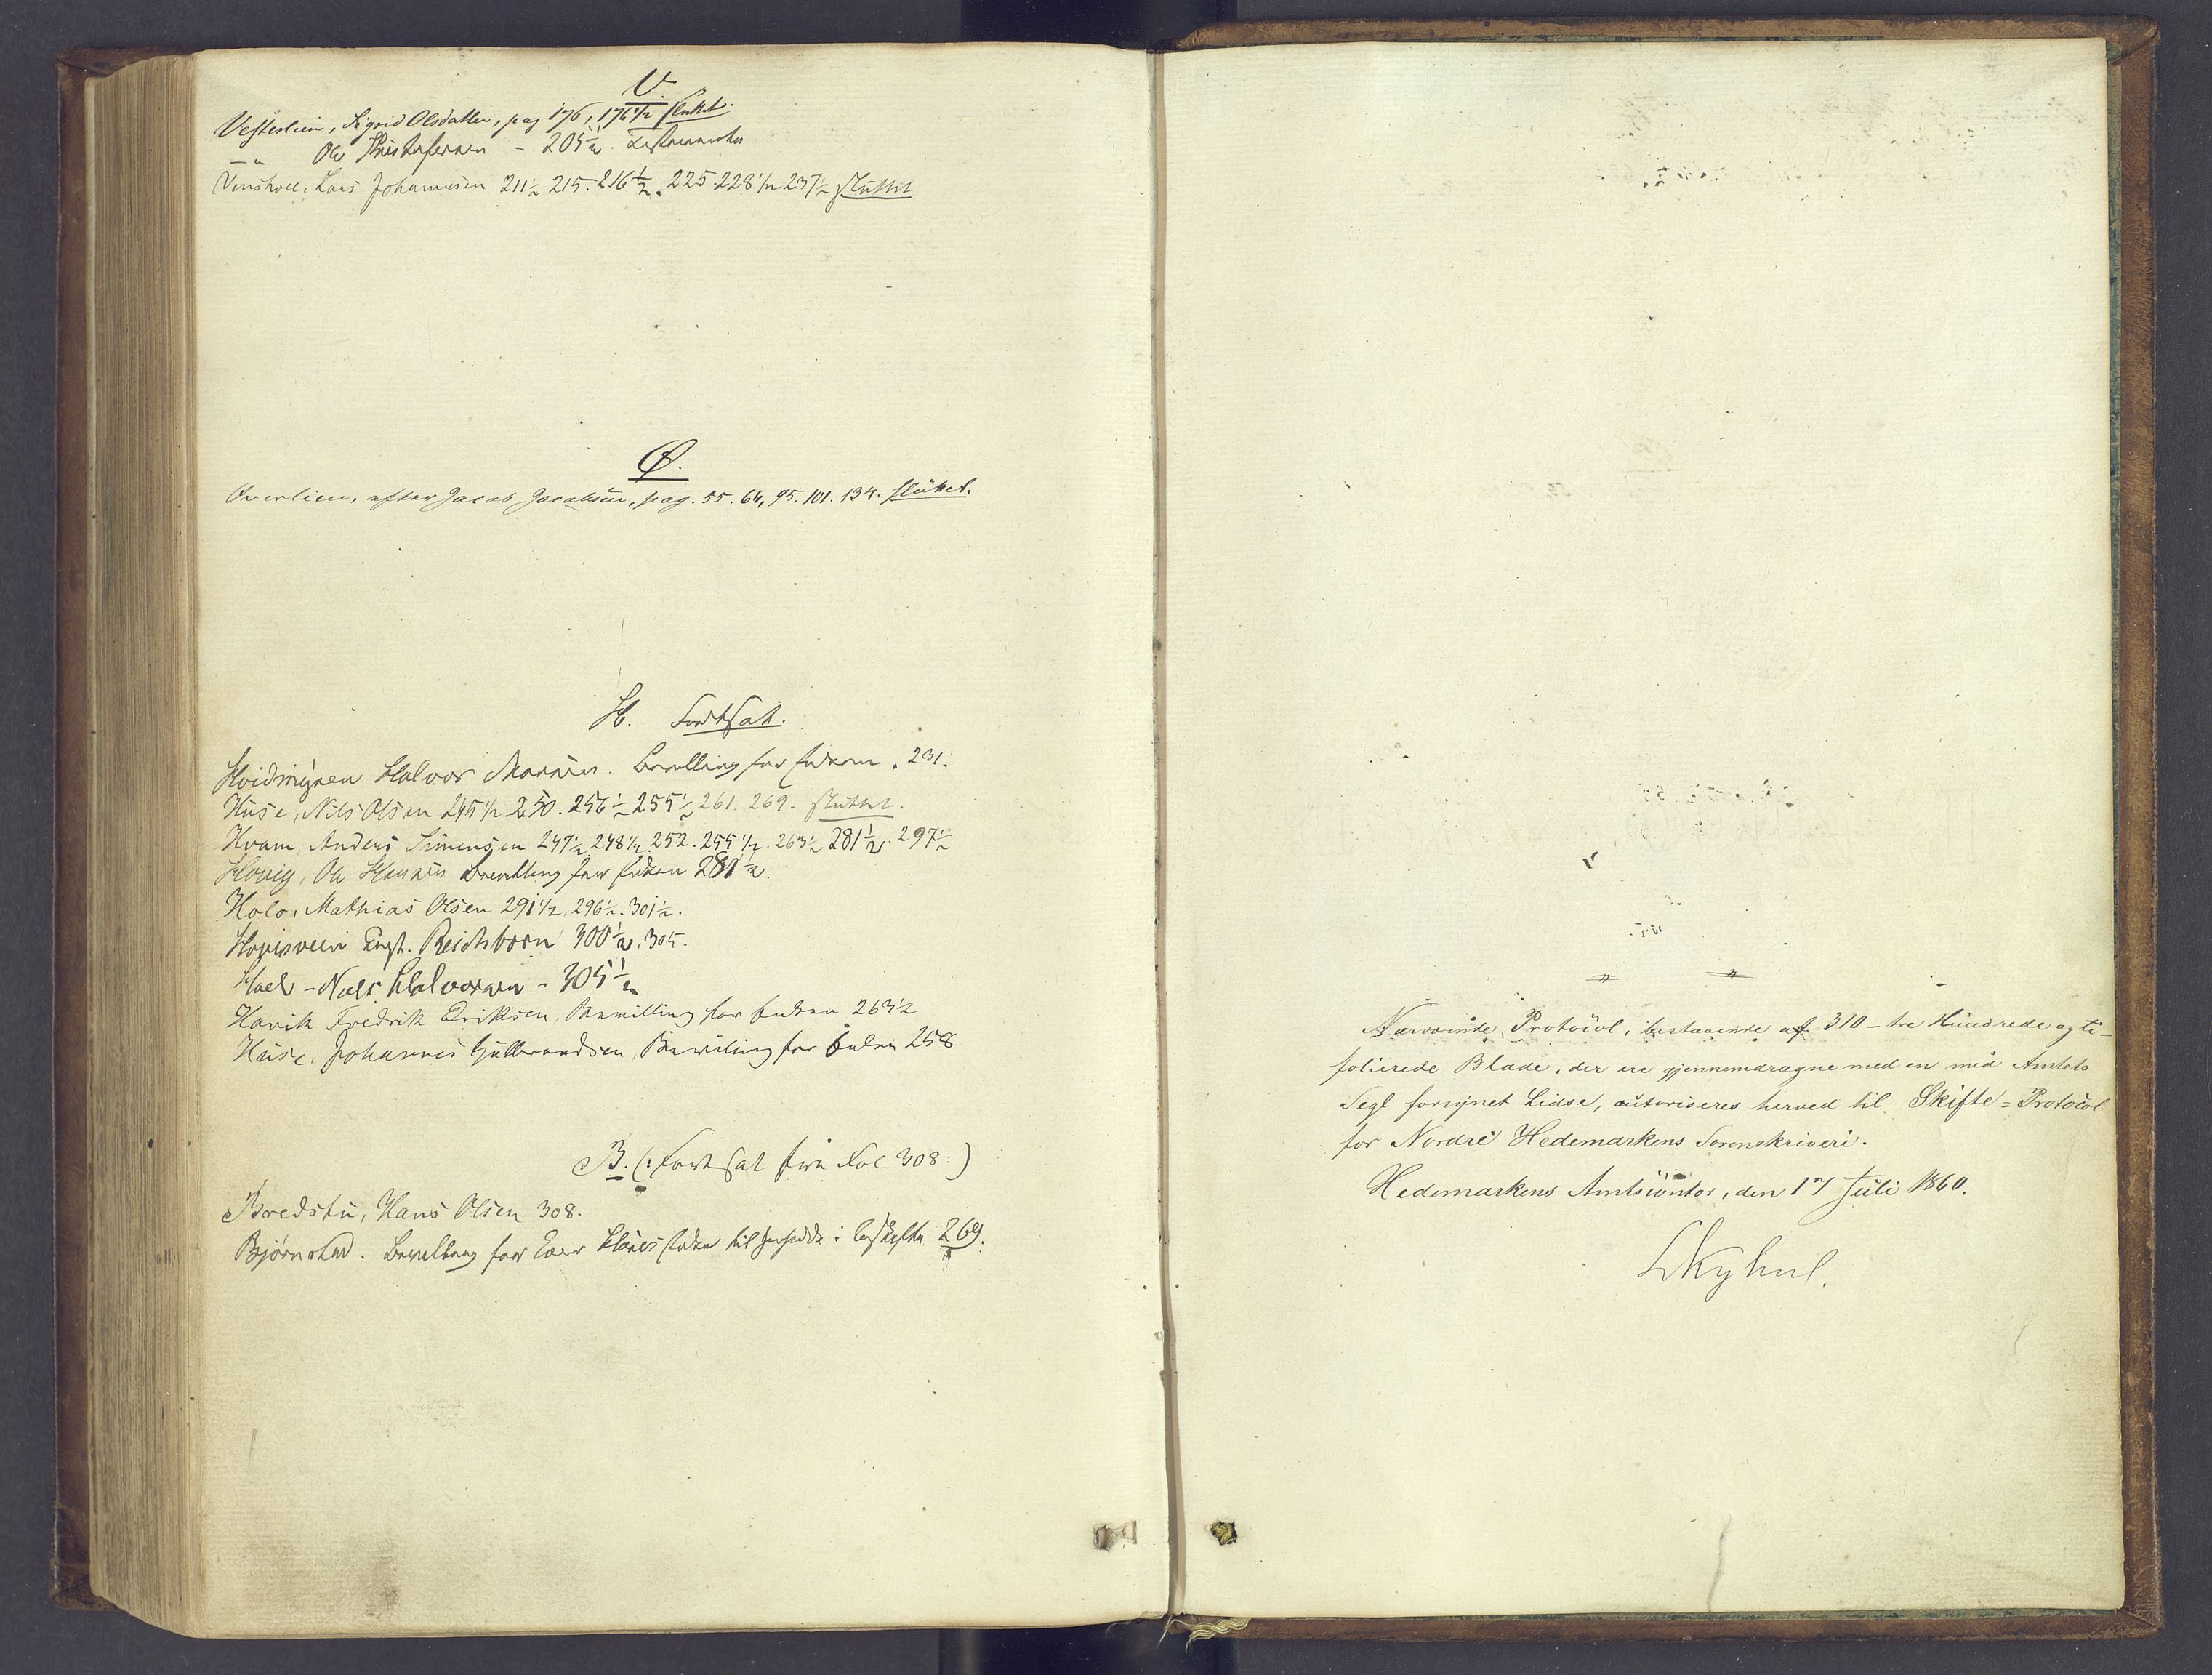 V.
Vesterlien, Sigrid Olsdatter, pag 176, 176 1/2 sluttet.
— " Ole Kristofersen - 205 1/2. Testamente
Lars Johannesen 211 1/2 215. 216 1/2. 225 228 1/2 237 1/2 sluttet
Ø.
Øverlien, efter Jacob Jacobsen, pag. 55. 64, 95. 101. 134. sluttet.
H. Fortsat.
Halvor Bevilling for Enken. 231.
Huse, Nils Olsen 245 1/2 250. 256 1/2 255 1/2 261. 269. sluttet.
Kvam, Anders Simensen 247 1/2 248 1/2 252. 255 1/2. 263 1/2 281 1/2. 297 1/2
Hovig, Ole Hansen Bevilling for Enken 281 1/2.
Holo, Mathias Olsen 291 1/2, 296 1/2. 301 1/2.
Engh. Reichborn 300 1/2. 305.
Hoel - Niels Halvorsen - 305 1/2
Havik Fredrik Eriksen, Bevilling for Enken 263 1/2
Huse, Johannes Gulbrandsen, Bevilling for Enken 258
B. (: Fortsat fra Fol 308 :)
Bredstu, Hans Olsen 308.
Bjørnstad. Bevilling for Enke til i 269.
Nærværende Protocol, bestaaende af 310 - tre Hundrede og ti -
folierede Blade, der ere gjennemdragne med en med Amtets
Segl forsynet Lidse, autoriseres herved til Skifte = Protocol
for Nordre Hedemarkens Sorenskriveri.
Hedemarkens Amtscontor, den 17 Juli 1860.